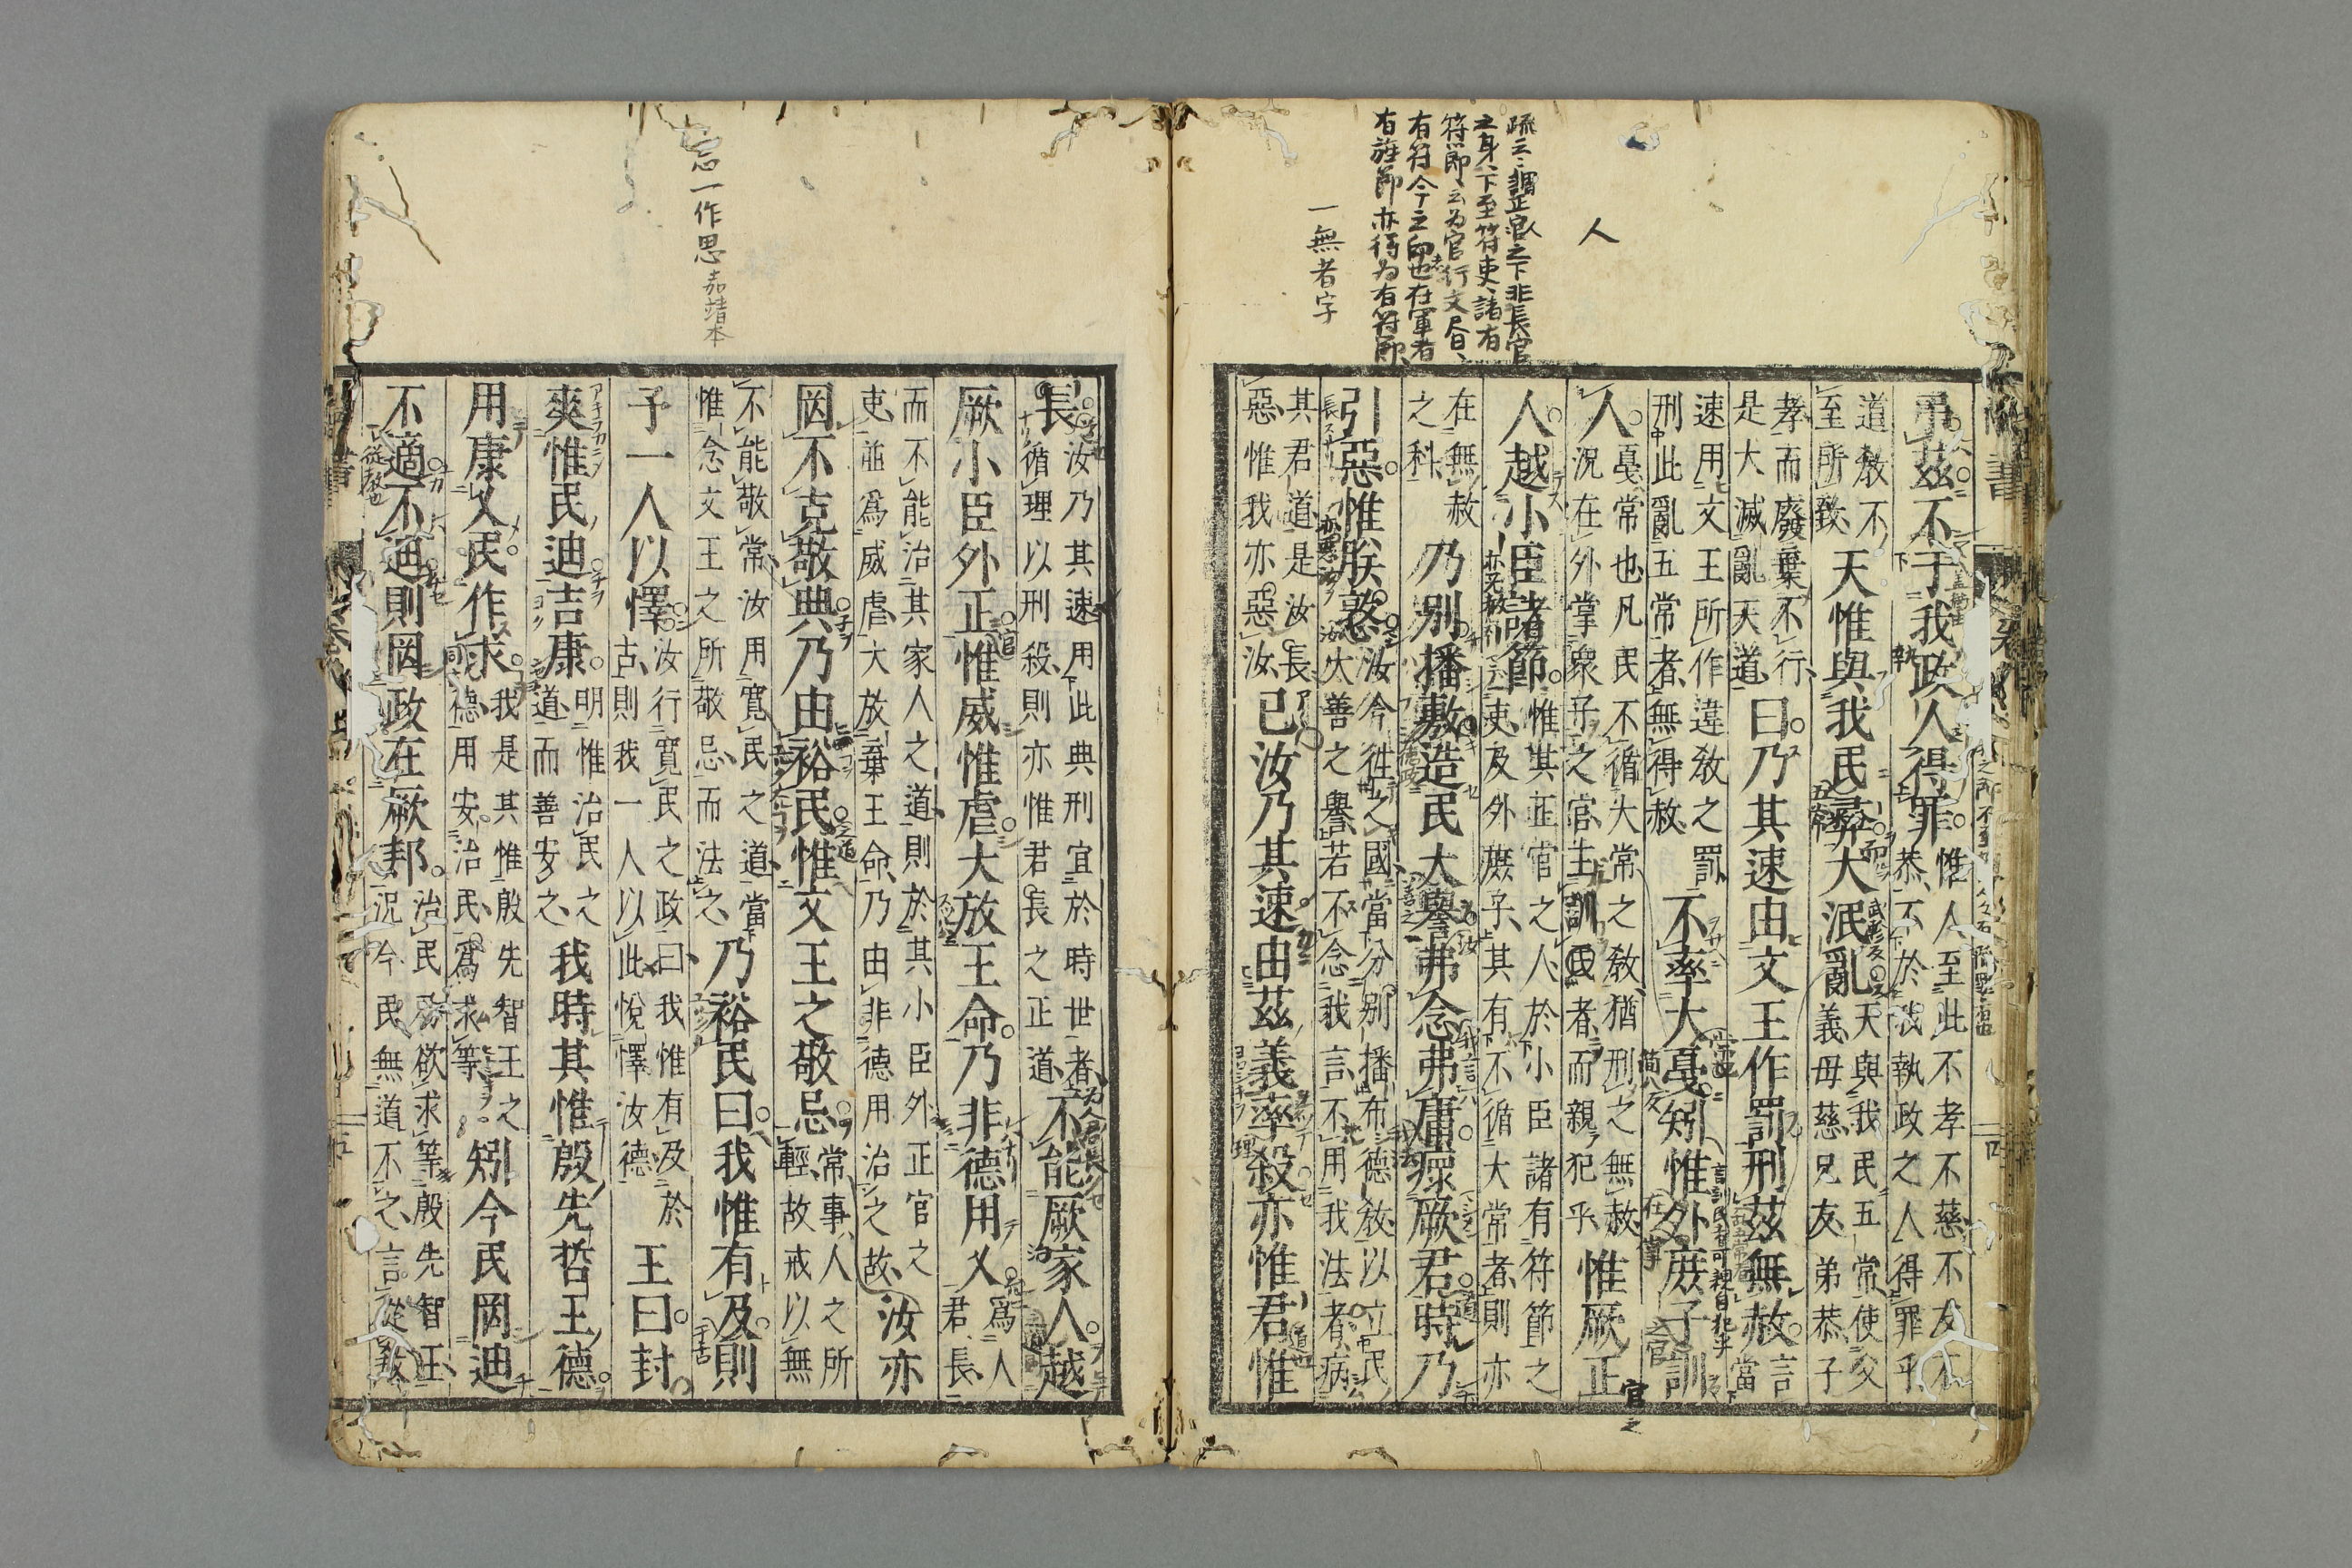 疏云謂正官之下非長官
之身下至符吏諸有
符節云為官行文居
有符今之印也在軍者
有旌節亦得為有符節
人
一無者字
弔茲不于我政人得罪
惟人至此不孝不慈不友不
恭不於我執政之人得罪乎
道教不
至所致
天惟與我民彝大泯亂
天與我民五常使父
義母慈兄友弟恭子
孝而廢棄不行
是大滅亂天道
曰乃其速由文王作罰刑茲無赦
言
當
速用文王所作違教之罰
刑此亂五常者無得赦
不率大戛矧惟外庶子訓
人
戛常也凡民不循大常之教猶刑之無赦
況在外掌衆子之官主訓民者而親犯乎
惟厥正
人越小臣諸節
惟其正官之人於小臣諸有符節之
吏及外庶子其有不循大常者則亦
在無赦
之科
乃別播敷造民大譽弗念弗庸瘝厥君時乃
引惡惟朕憝
汝今往之國當分別播布德教以立民
大善之譽若不念我言不用我法者病
其君道是汝長
惡惟我亦惡汝
已汝乃其速由茲義率殺亦惟君惟
忌一作思嘉靖本
長
汝乃其速用此典刑宜於時世者
循理以刑殺則亦惟君長之正道
不能厥家人越
厥小臣外正惟威惟虐大放王命乃非德用乂
爲人
君長
而不能治其家人之道則於其小臣外正官之
吏並爲威虐大放棄王命乃由非德用治之故
汝亦
罔不克敬典乃由裕民惟文王之敬忌
常事人之所
輕故戒以無
不能敬常汝用寬民之道當
惟念文王之所敬忌而法之
乃裕民曰我惟有及則
予一人以懌
汝行寬民之政曰我惟有及於
古則我一人以此悅懌汝德
王曰封
爽惟民迪吉康
明惟治民之
道而善安之
我時其惟殷先哲王德
用康乂民作求
我是其惟殷先智王之
德用安治民爲求等
矧今民罔迪
不適不迪則罔政在厥邦
治民欲求等殷先智王
況今民無道不之言從教